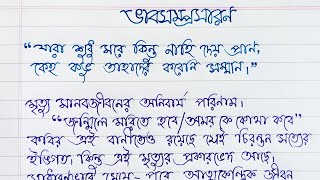 ভাবসম্প্রসারন
"যারা শুধু মরে কিন্তু নাহি দেয় প্রাণ,
কেহ কভু তাহাদের করেনি সম্মান।"
মৃত্যু মানবজীবনের অনিবার্য পরিনাম।
"জন্মিলে মরিতে হবে/অমর কে কোথা কবে"
কবির এই বানীতেও রয়েছে সেই চিরন্তন সত্যের
ইঙ্গিত। কিন্তু এই মৃত্যুর প্রকারভেদ আছে।
আত্মকেন্দ্রিক জীবন